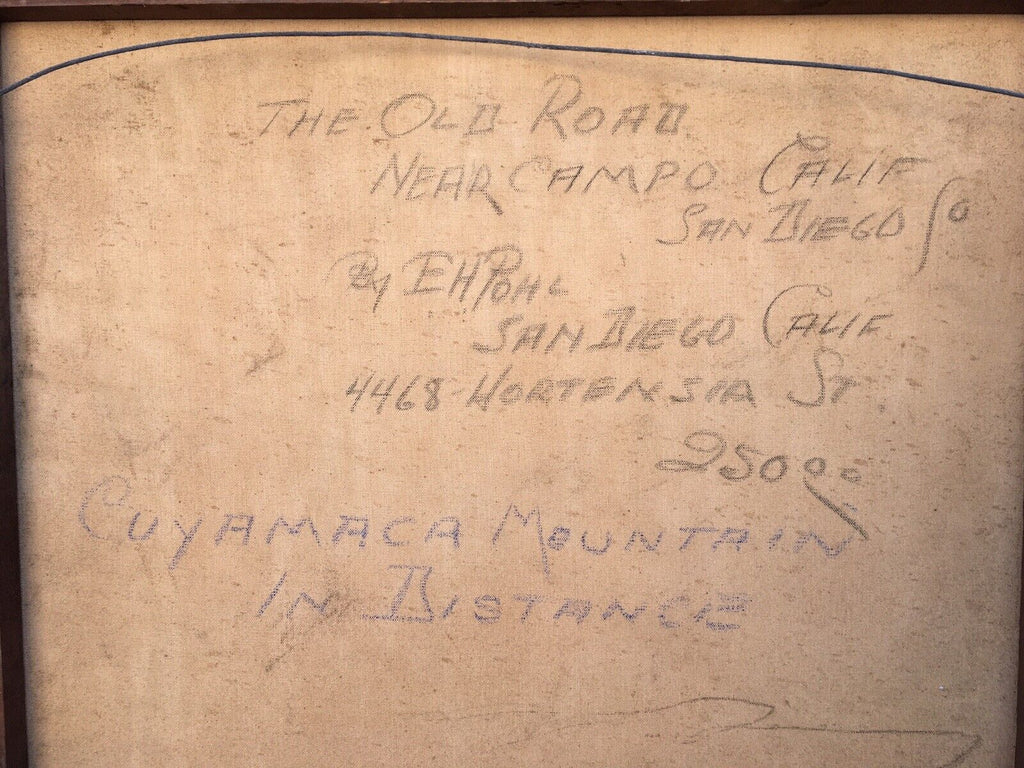 THE OLD ROAD
NEAR CAMPO CALIF
SAN DIEGO Co
By EH POHL
SAN DIEGO CALIF
4468 HORTENSIA ST
250 00
CUYAMACA MOUNTAIN
IN DISTANCE